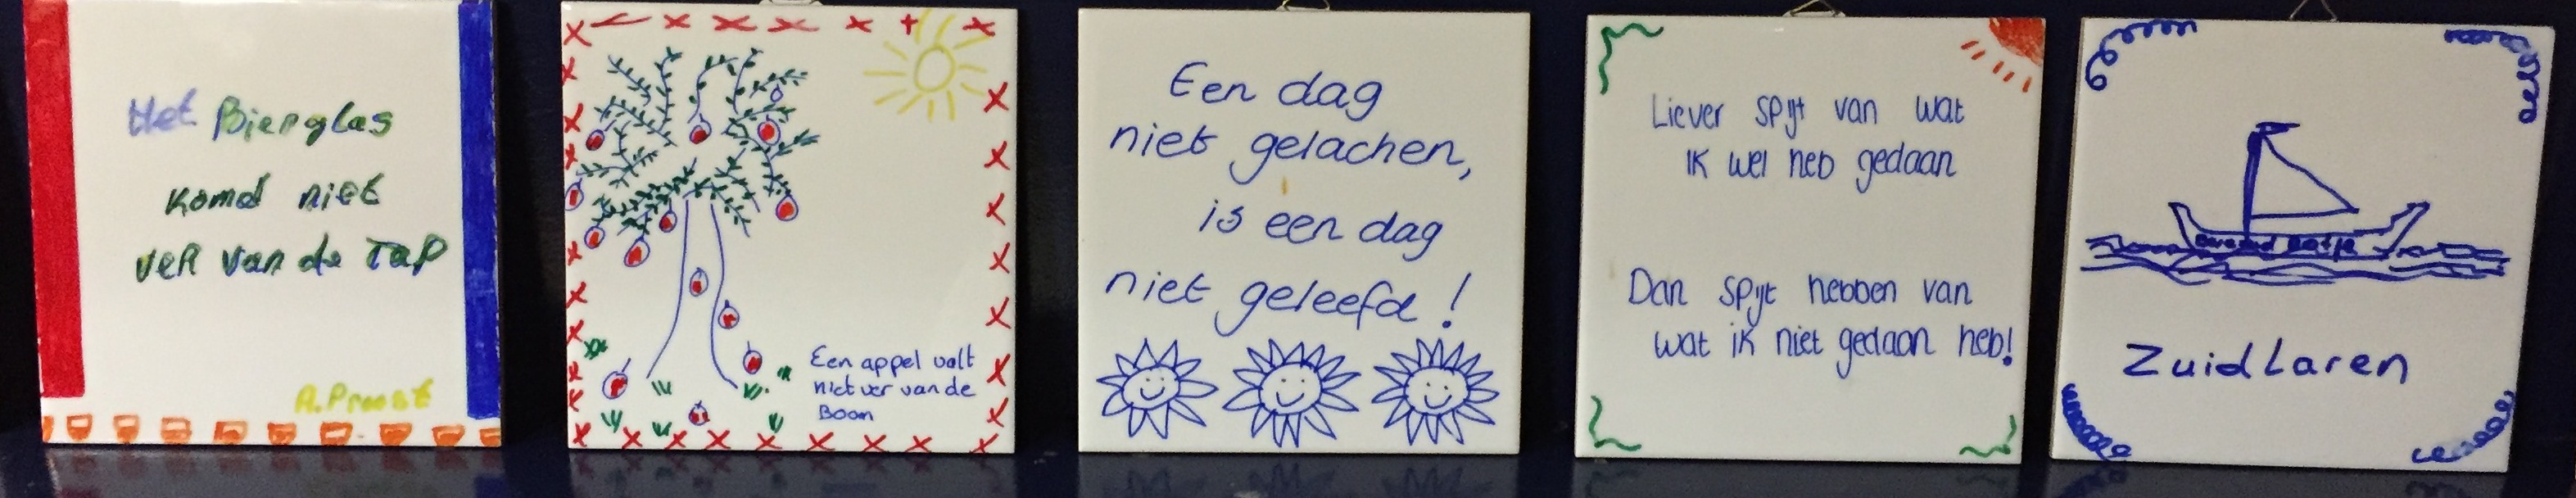 Het Bierglas
komd niet
ver van de TaP
A. Proost
Een appel valt
niet ver van de
Boom
Een dag
niet gelachen,
is een dag
niet geleefd!
Liever spijt van wat
ik wel heb gedaan
Dan spijt hebben van
wat ik niet gedaan heb!
Zuidlaren